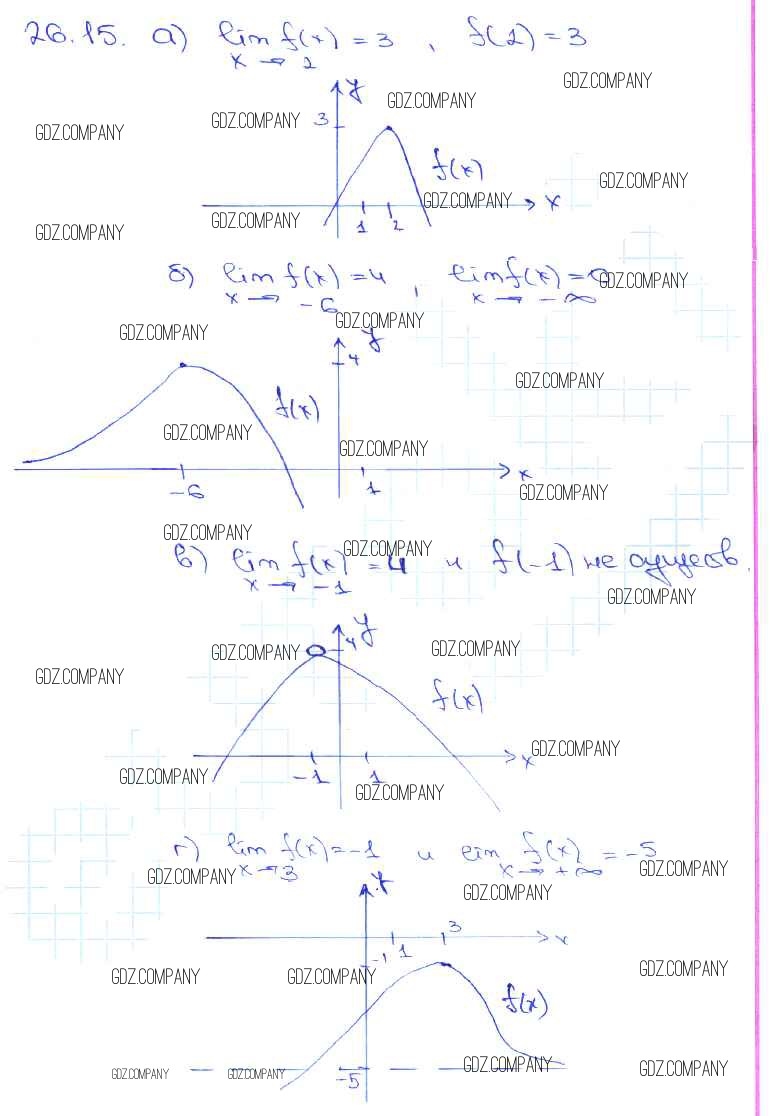 26.15. а) lim f(x) = 3 , f(2) = 3
x → 2
GDZ.COMPANY
y
GDZ.COMPANY
GDZ.COMPANY
3
GDZ.COMPANY
f(x)
GDZ.COMPANY
GDZ.COMPANY
x
GDZ.COMPANY
GDZ.COMPANY
1 2
б) lim f(x) = 4 , lim f(x) = 0
GDZ.COMPANY
x → -6 x → -∞
GDZ.COMPANY
GDZ.COMPANY
y
4
GDZ.COMPANY
f(x)
GDZ.COMPANY
GDZ.COMPANY
x
-6 1
GDZ.COMPANY
GDZ.COMPANY
GDZ.COMPANY
в) lim f(x) = 4 и f(-1) не сущесв.
x → -1
GDZ.COMPANY
y
GDZ.COMPANY
4
GDZ.COMPANY
GDZ.COMPANY
f(x)
GDZ.COMPANY
x
-1 1
GDZ.COMPANY
GDZ.COMPANY
г) lim f(x) = -1 и lim f(x) = -5
x → 3 x → +∞
GDZ.COMPANY
GDZ.COMPANY
y
GDZ.COMPANY
3
x
-1 1
GDZ.COMPANY
GDZ.COMPANY
GDZ.COMPANY
f(x)
GDZ.COMPANY
GDZ.COMPANY
-5
GDZ.COMPANY
GDZ.COMPANY